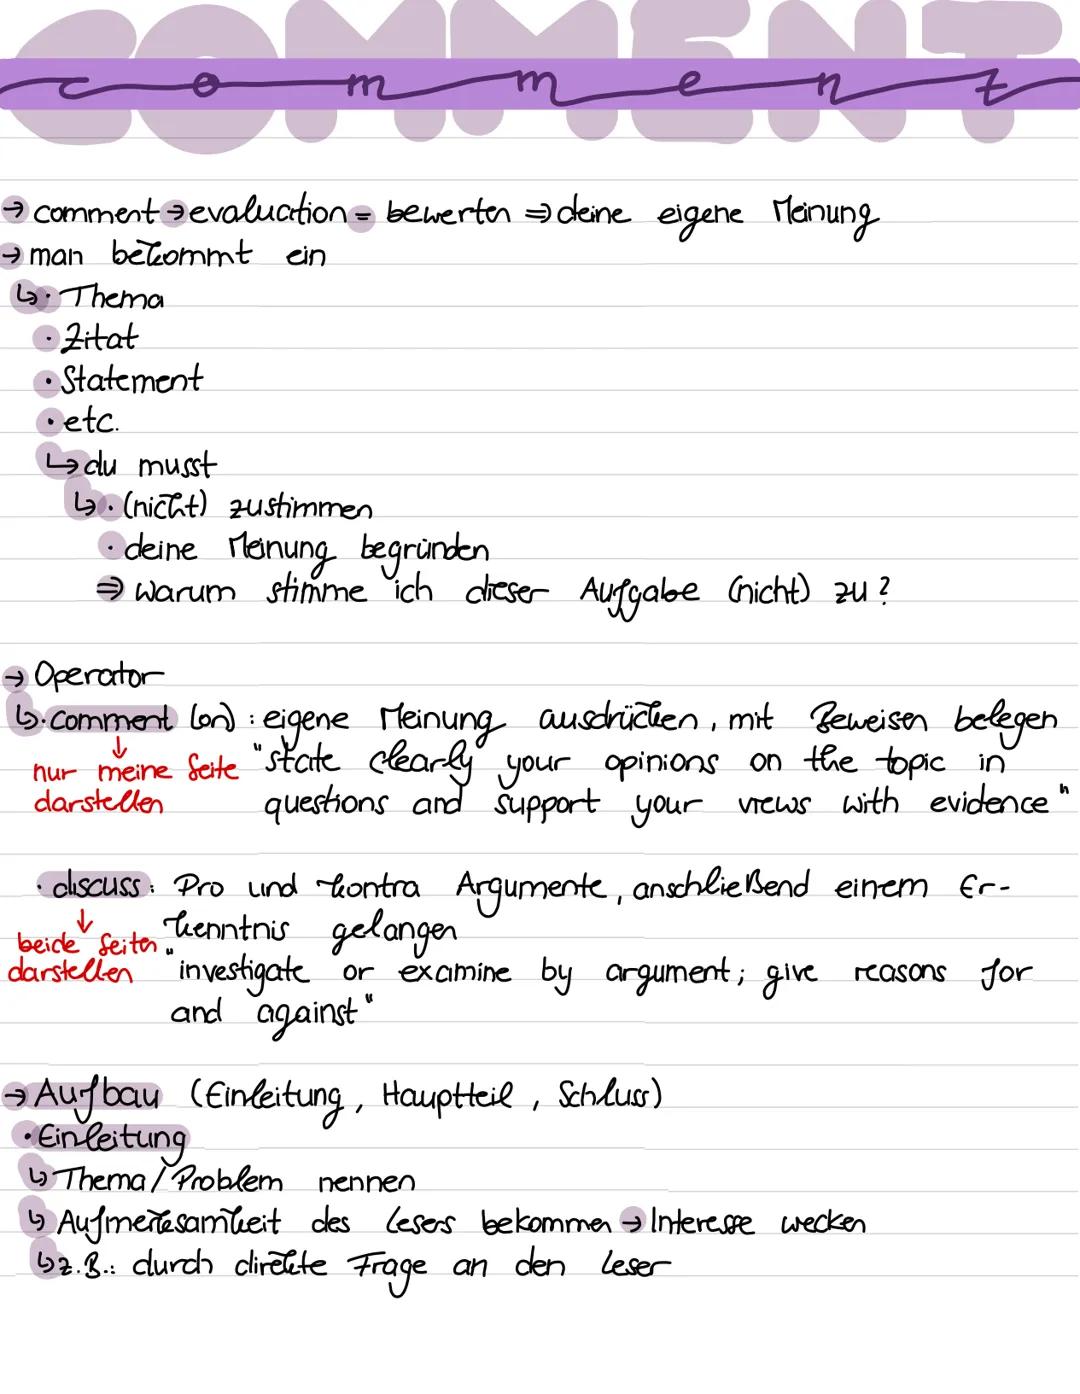 COMMENT
comment
→ comment → evaluation = bewerten ⇒ deine eigene Meinung
→ man bekommt ein
↳ · Thema
· Zitat
· Statement
· etc.
↳ du musst
↳ · (nicht) zustimmen
· deine Meinung begründen
⇒ warum stimme ich dieser Aufgabe (nicht) zu?
→ Operator
↳ · comment (on): eigene Meinung ausdrücken, mit Beweisen belegen
↓
nur meine Seite "state clearly your opinions on the topic in
darstellen questions and support your views with evidence"
· discuss: Pro und Kontra Argumente, anschließend einem Er-
↓ kenntnis gelangen
beide Seiten
darstellen "investigate or examine by argument; give reasons for
and against"
→ Aufbau (Einleitung, Hauptteil, Schluss)
· Einleitung
↳ Thema/Problem nennen
↳ Aufmerksamkeit des Lesers bekommen → Interesse wecken
↳ z.B.: durch direkte Frage an den Leser